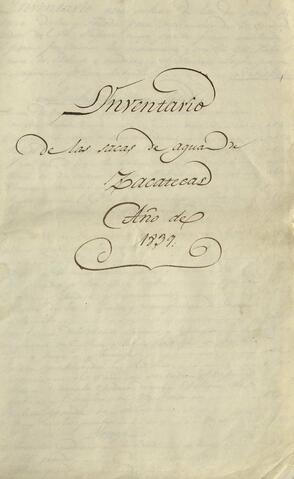 Inventario
de las sacas de agua de
Zacatecas
Año de
1839.